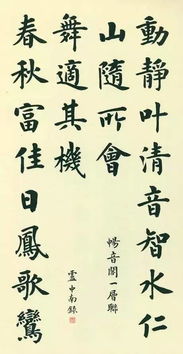 動靜叶清音智水仁
山隨所會
春秋富佳日鳳歌鸞
舞適其機
暢音閣一層聯
盧中南錄